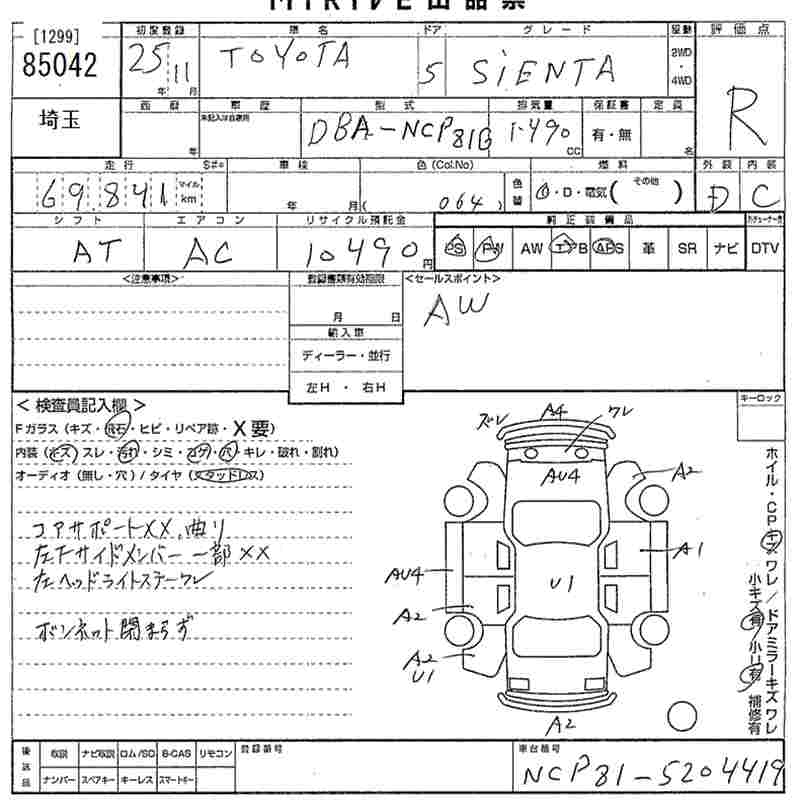 MIRIVE出品票
[1299]
85042
初度登録 車名 ドア グレード 駆動 評価点
25年 11月 TOYOTA 5 SiENTA 2WD・4WD R
埼玉
西暦 車歴 型式 排気量 保証書 定員
年 未記入は自家用 DBA-NCP81G 1490cc 有・無 名
走行 S#※ 車検 色(Col.No) 燃料 外装 内装
69841 マイル km 年 月( 064 ) 色替 G・D・電気( その他 ) D C
シフト エアコン リサイクル預託金 純正装備品
AT AC 10490円 PS PW AW エアB ABS 革 SR ナビ DTV
<注意事項> 登録書類有効期限 <セールスポイント>
月 日 AW
輸入車
ディーラー・並行
左H ・ 右H
<検査員記入欄> キーロック
Fガラス(キズ・飛石・ヒビ・リペア跡・X要)
内装(キズ スレ・汚れ・シミ・コゲ・穴・キレ・破れ・割れ)
オーディオ(無し・穴)/タイヤ(スタッドレス)
コアサポートXX、曲り
左下サイドメンバー一部XX
左ヘッドライトステーワレ
ボンネット閉まらず
ズレ A4 ワレ
AU4 A2
A1
AU4 U1
A2
A2
U1
A2
ホイル・CP キズ ワレ/ドアミラーキズ ワレ
小キズ有 小U有 補修有
後送品 取説 ナビ取説 ロム/SD B-CAS リモコン 登録番号 車台番号
ナンバー スペアキー キーレス スマートキー NCP81-5204419